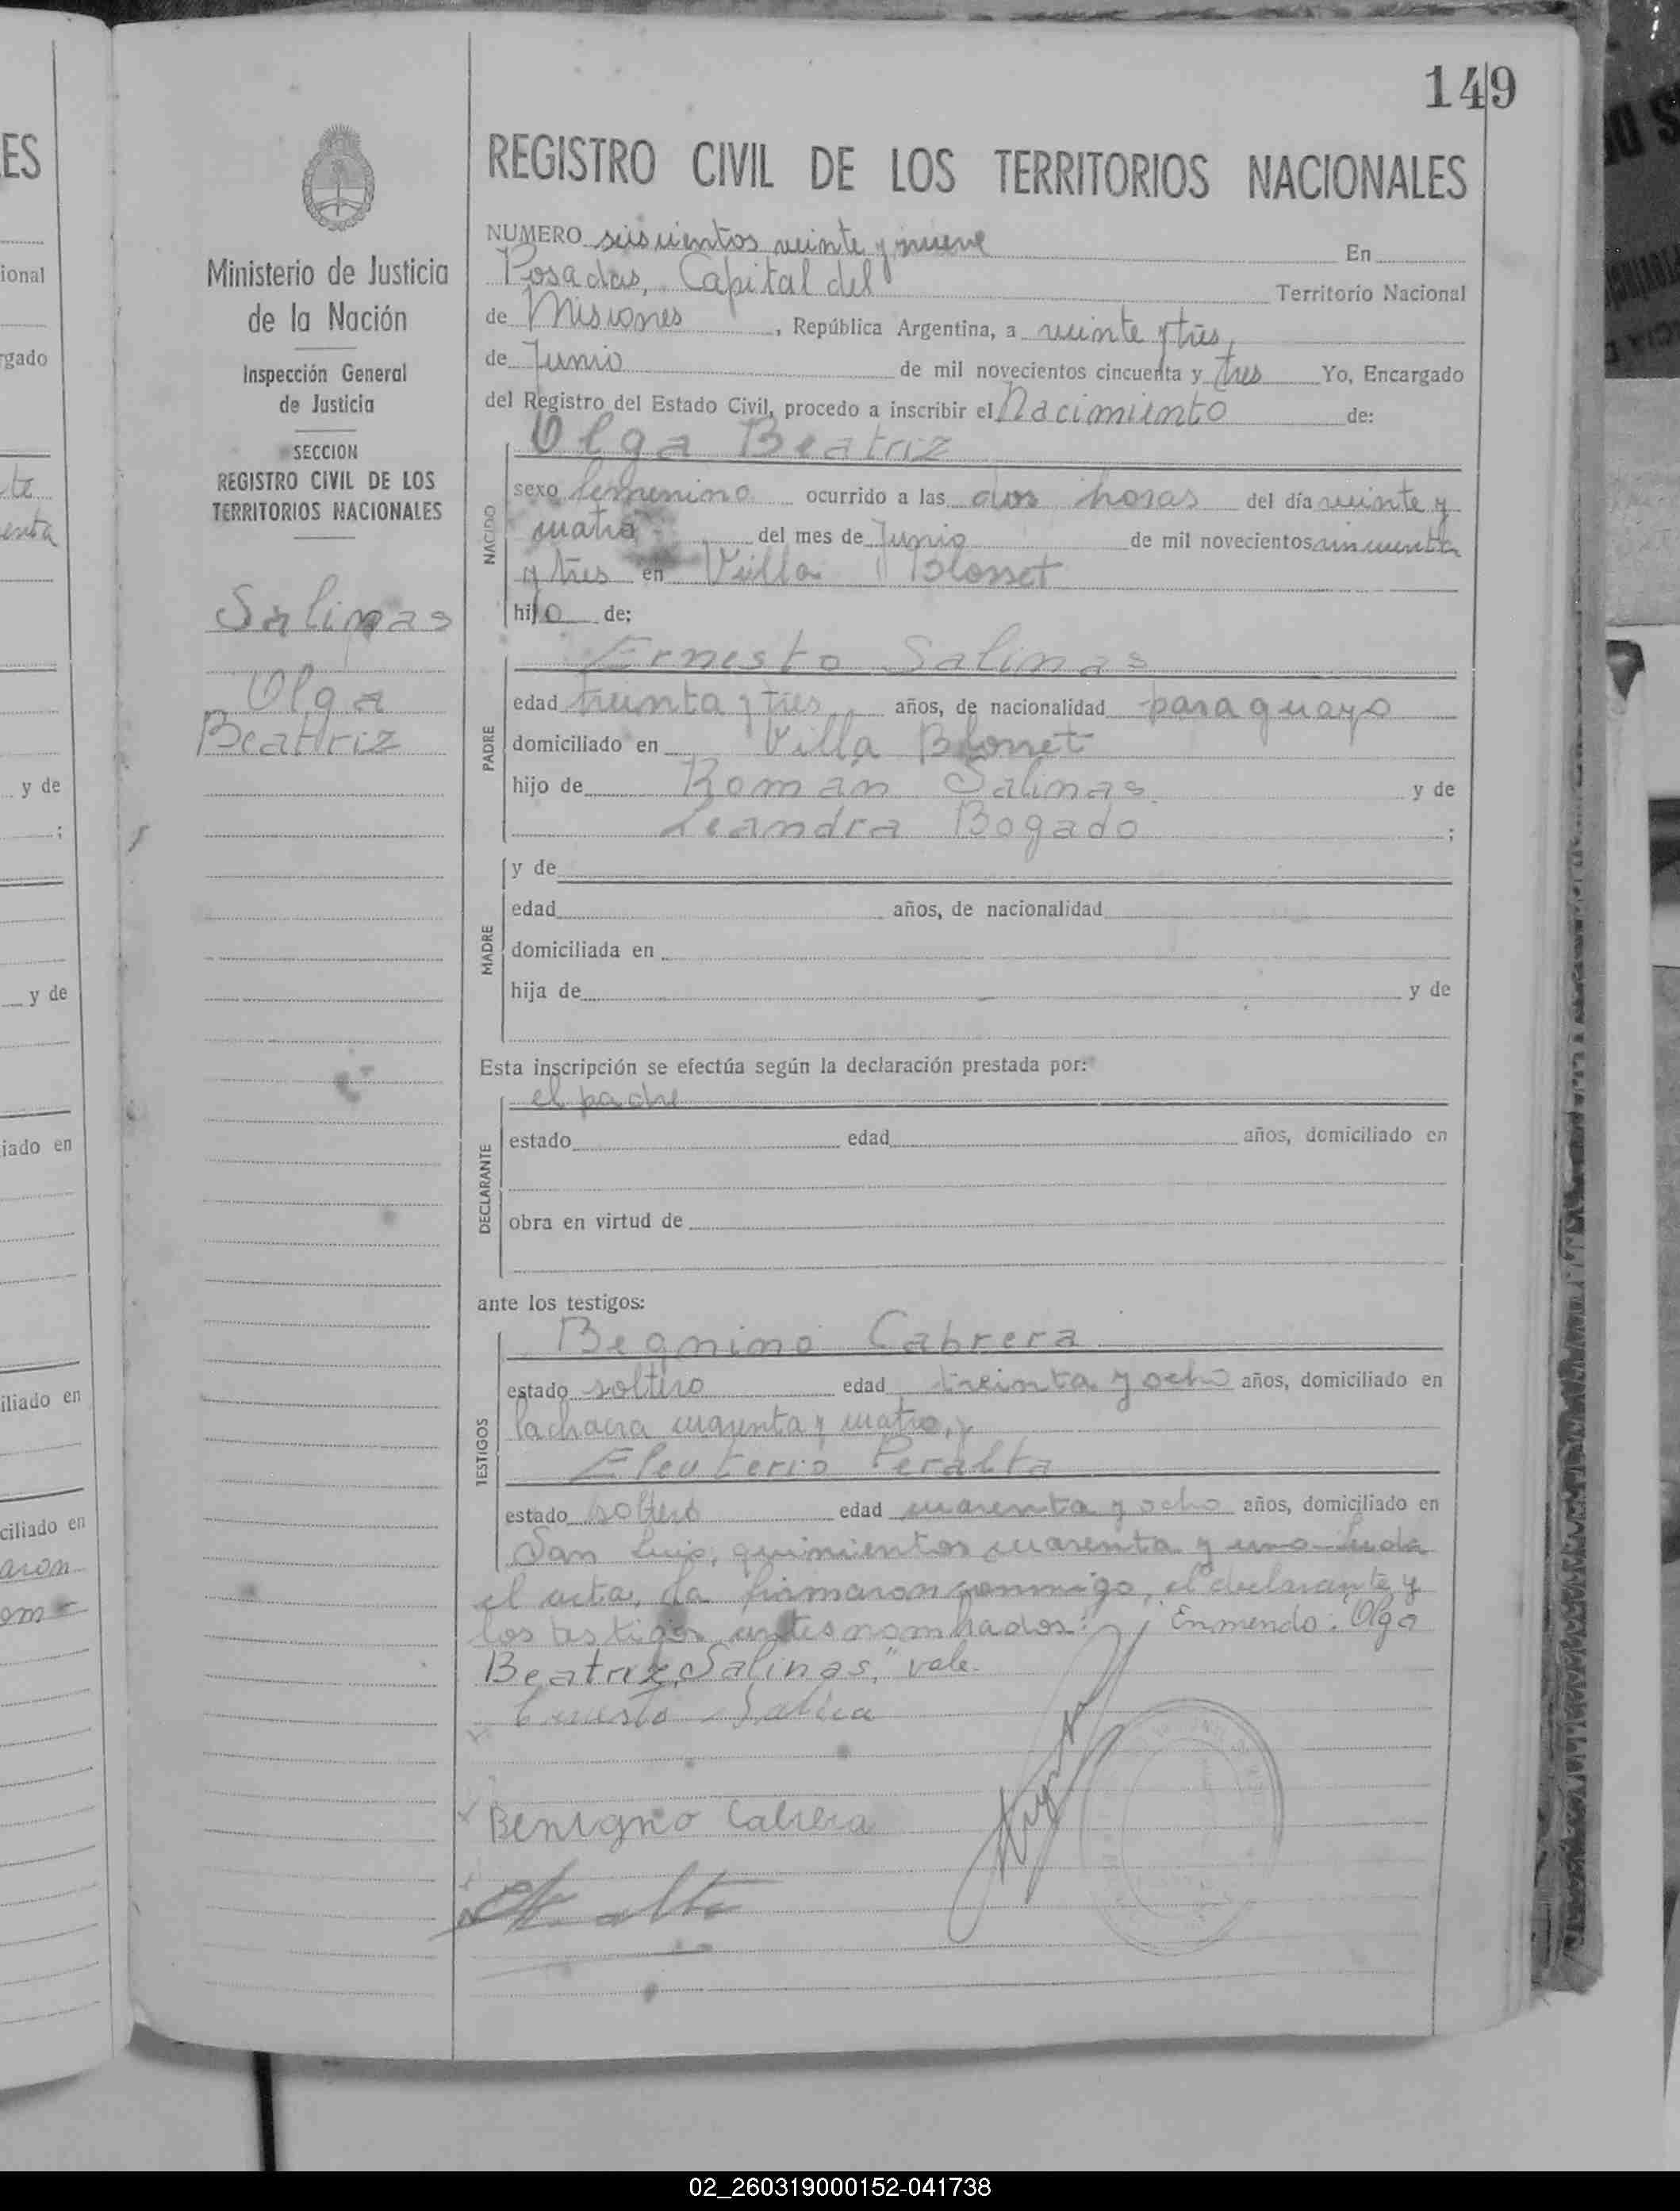 149
ES
REGISTRO CIVIL DE LOS TERRITORIOS NACIONALES
Ministerio de Justicia
de la Nación
Inspección General
de Justicia
SECCION
REGISTRO CIVIL DE LOS
TERRITORIOS NACIONALES
Salinas
Olga
Beatriz
NUMERO seiscientos veinte y nueve En
Posadas, Capital del Territorio Nacional
de Misiones, República Argentina, a veinte y tres,
de Junio de mil novecientos cincuenta y tres Yo, Encargado
del Registro del Estado Civil, procedo a inscribir el Nacimiento de:
Olga Beatriz
NACIDO
sexo femenino ocurrido a las dos horas del día veinte y
cuatro del mes de Junio de mil novecientos cincuenta
y tres en Villa Blosset
hijo de:
PADRE
Ernesto Salinas
edad treinta y tres años, de nacionalidad paraguayo
domiciliado en Villa Blosset
hijo de Román Salinas y de
Leandra Bogado ;
MADRE
y de
edad años, de nacionalidad
domiciliada en
hija de y de
Esta inscripción se efectúa según la declaración prestada por:
DECLARANTE
el padre
estado edad años, domiciliado en
obra en virtud de
ante los testigos:
TESTIGOS
Begnino Cabrera
estado soltero edad treinta y ocho años, domiciliado en
la chacra cuarenta y cuatro, y
Eleuterio Peralta
estado soltero edad cuarenta y ocho años, domiciliado en
San Luis, quinientos cuarenta y uno. Leida
el acta, la firmaron conmigo, el declarante y
los testigos antes nombrados: Enmendo: "Olga
Beatriz, Salinas," vale.
Ernesto Salina
Benigno Cabrera
ional
rgado
te
enta
y de
;
y de
iado en
iliado en
ciliado en
aron
02_260319000152-041738